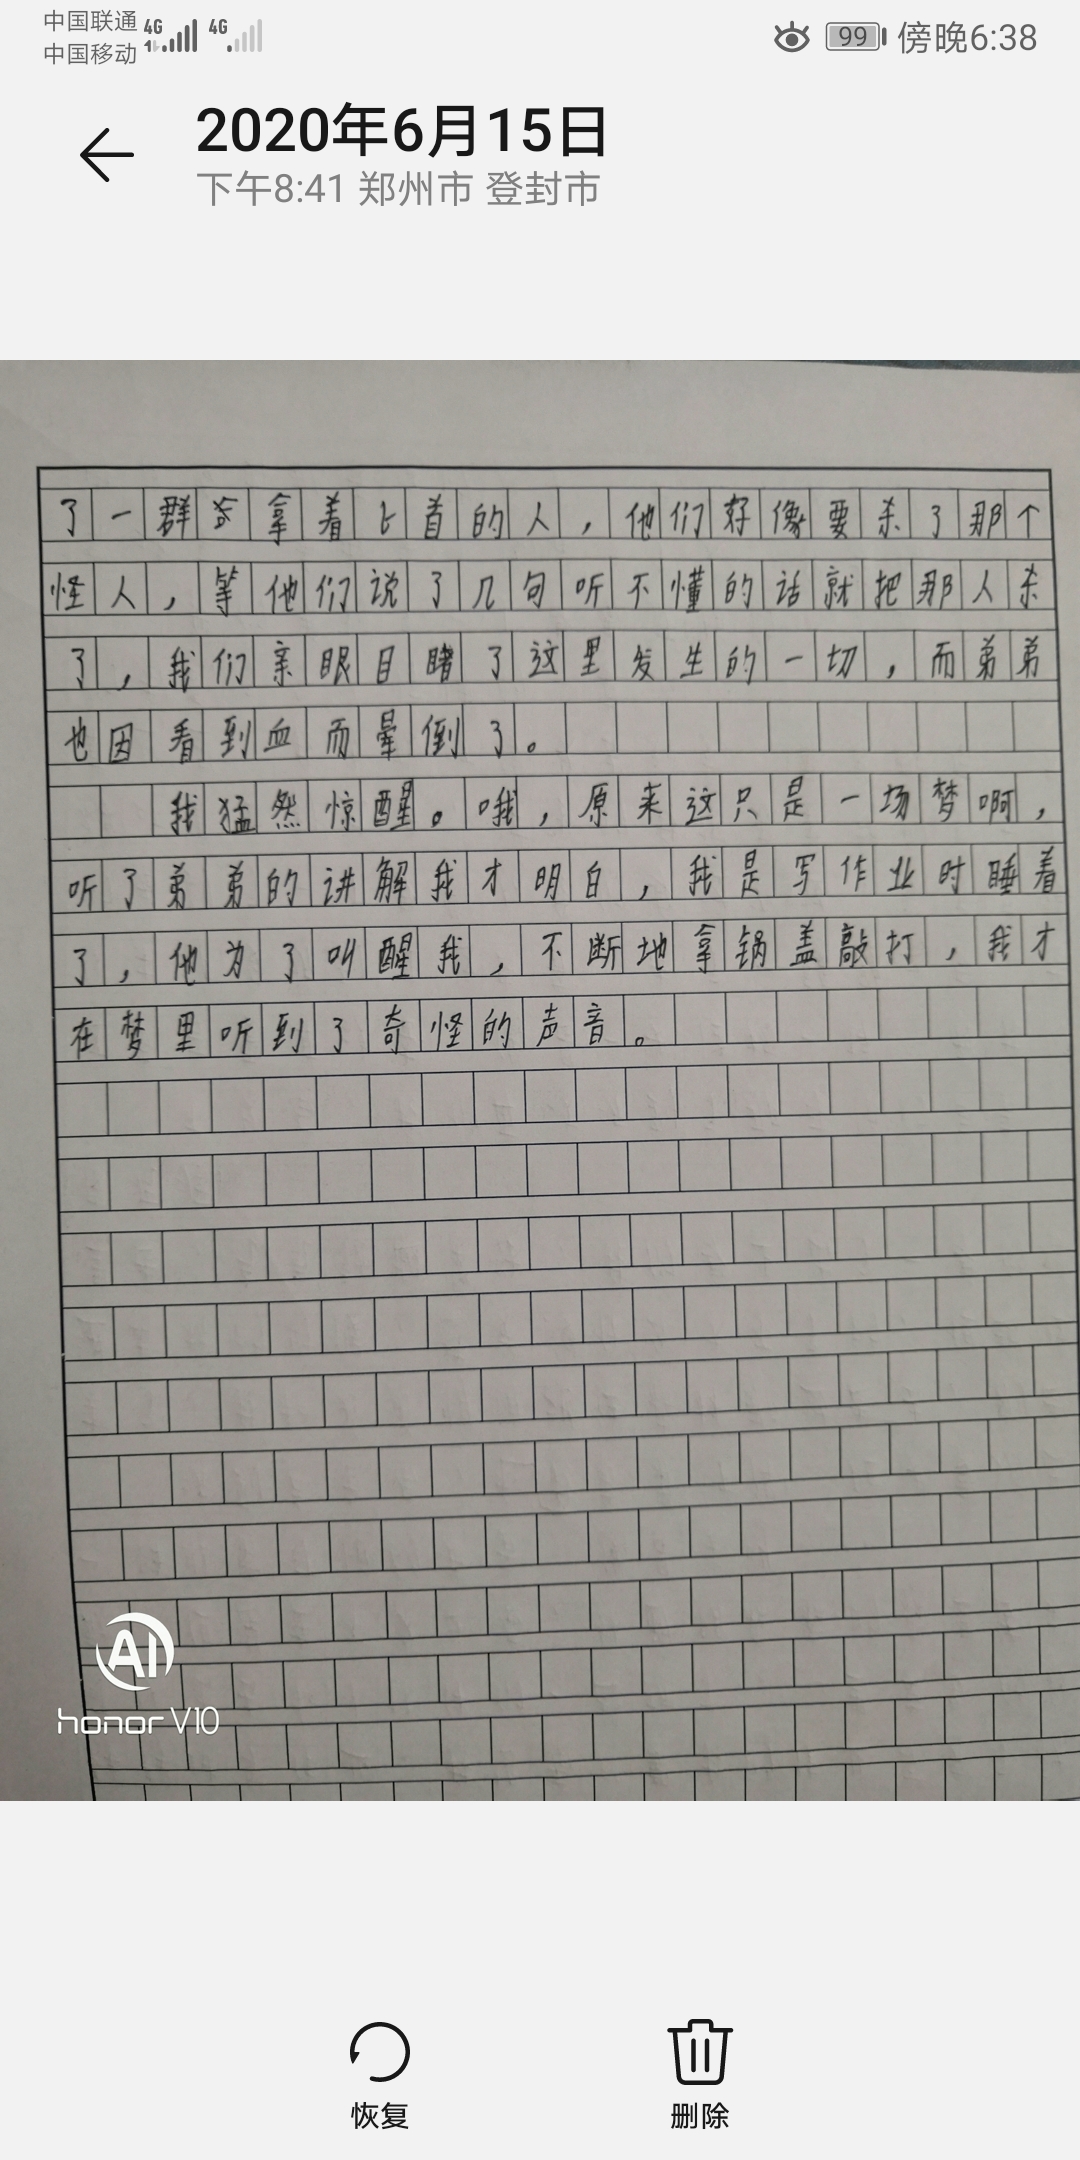 中国联通 4G 4G 99 傍晚6:38
中国移动
2020年6月15日
下午8:41 郑州市 登封市
了一群拿着匕首的人，他们好像要杀了那个
怪人，等他们说了几句听不懂的话就把那人杀
了，我们亲眼目睹了这里发生的一切，而弟弟
也因看到血而晕倒了。
我猛然惊醒。哦，原来这只是一场梦啊，
听了弟弟的讲解我才明白，我是写作业时睡着
了，他为了叫醒我，不断地拿锅盖敲打，我才
在梦里听到了奇怪的声音。
AI
honor V10
恢复 删除